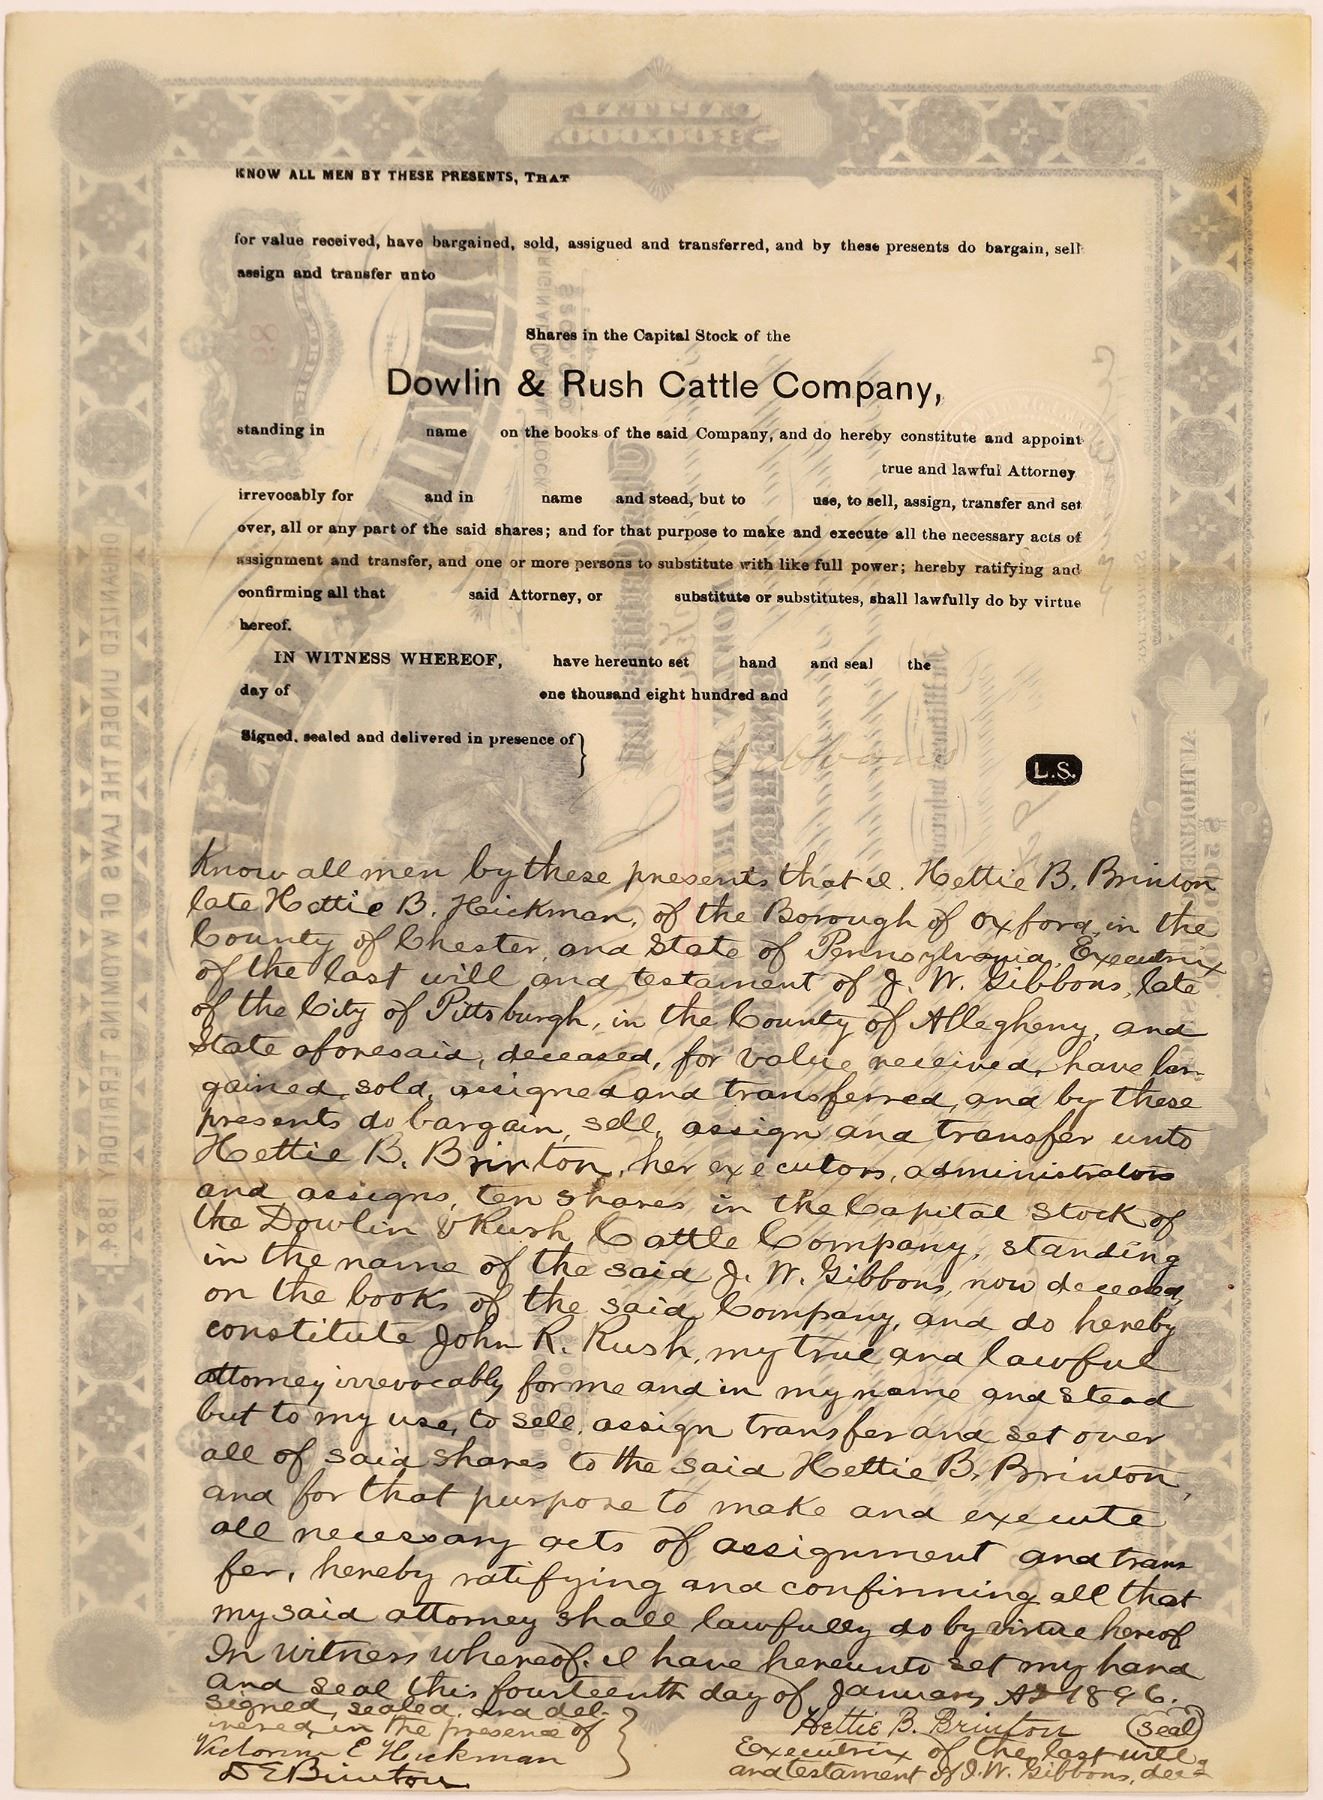 KNOW ALL MEN BY THESE PRESENTS, THAT
for value received, have bargained, sold, assigned and transferred, and by these presents do bargain, sell
assign and transfer unto
Shares in the Capital Stock of the
Dowlin & Rush Cattle Company,
standing in name on the books of the said Company, and do hereby constitute and appoint
true and lawful Attorney
irrevocably for and in name and stead, but to use, to sell, assign, transfer and set
over, all or any part of the said shares; and for that purpose to make and execute all the necessary acts of
assignment and transfer, and one or more persons to substitute with like full power; hereby ratifying and
confirming all that said Attorney, or substitute or substitutes, shall lawfully do by virtue
hereof.
IN WITNESS WHEREOF, have hereunto set hand and seal the
day of one thousand eight hundred and
Signed, sealed and delivered in presence of }
L.S.
Know all men by these presents that I, Hettie B. Brinton
late Hettie B. Hickman, of the Borough of Oxford, in the
County of Chester, and State of Pennsylvania, Executrix
of the last will and testament of J. W. Gibbons, late
of the City of Pittsburgh, in the County of Allegheny, and
State aforesaid, deceased, for value received, have bar-
gained, sold, assigned and transferred, and by these
presents do bargain, sell, assign and transfer unto
Hettie B. Brinton, her executors, administrators
and assigns, ten shares in the Capital Stock of
the Dowlin & Rush Cattle Company, standing
in the name of the said J. W. Gibbons, now deceased,
on the books of the said Company, and do hereby
constitute John R. Rush, my true and lawful
attorney irrevocably for me and in my name and stead
but to my use, to sell, assign transfer and set over
all of said shares to the said Hettie B. Brinton,
and for that purpose to make and execute
all necessary acts of assignment and trans
fer, hereby ratifying and confirming all that
my said attorney shall lawfully do by virtue hereof
In witness whereof, I have hereunto set my hand
and seal this fourteenth day of January AD 1896.
signed, sealed, and del-
ivered in the presence of
Victorina E Hickman
D E Brinton
Hettie B. Brinton (seal)
Executrix of the last will
and testament of J. W. Gibbons, dec'd
CAPITAL
$300,000.
ORGANIZED UNDER THE LAWS OF WYOMING TERRITORY 1884.